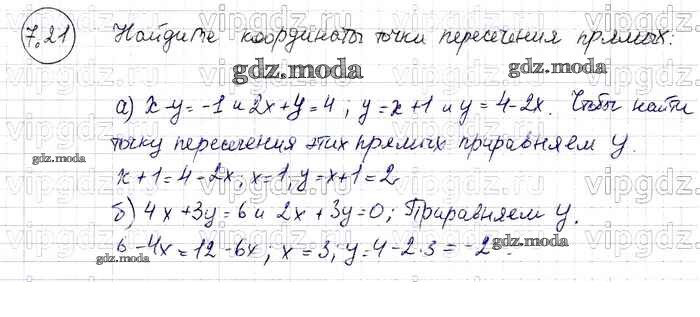 7.21 Найдите координаты точки пересечения прямых:
gdz.moda gdz.moda
а) x-y=-1 и 2x+y=4; y=x+1 и y=4-2x. Чтобы найти
точку пересечения этих прямых приравняем y.
gdz.moda
x+1=4-2x; x=1, y=x+1=2
gdz.moda
б) 4x+3y=6 и 2x+3y=0; Приравняем y.
6-4x=12-6x; x=3; y=4-2·3=-2.
gdz.moda gdz.moda